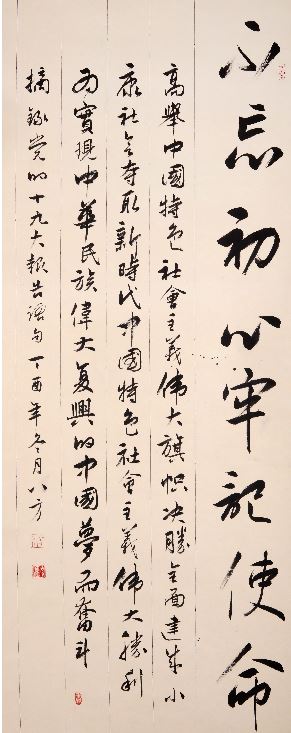 不忘初心牢記使命
高舉中國特色社會主義伟大旗幟决勝全面建成小
康社会夺取新時代中國特色社会主義伟大勝利
为實現中華民族偉大复興的中國夢而奮斗
摘録党的十九大報告語句丁酉年冬月八方